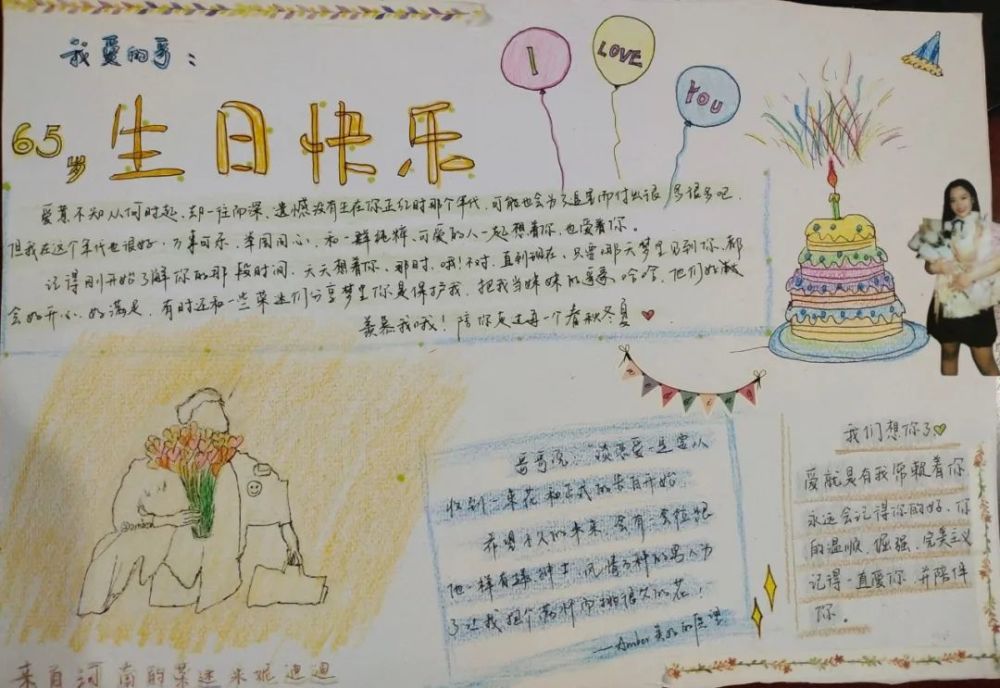 我爱的哥：
I LOVE YOU
65岁 生日快乐
爱意不知从何时起，却一往而深、遗憾没有生在你正红时那个年代，可能也会为了追害而付出很多很多吧
但我在这个年代也很好，万事可乐，举国同心，和一群纯粹、可爱的人一起想着你，也爱着你。
记得刚开始了解你的那段时间，天天想着你，那时，哦！不对，直到现在，只要哪天梦里见到你，都
会好开心，好满足，有时还和一些荣迷们分享梦里你是保护我，把我当妹妹的，哈哈，他们好
羡慕我哦！陪你走过每一个春秋冬夏
哥哥说：“谈恋爱一定要从
收到一束花和正式的告白开始
希望个人的未来，会有一会位跟
他一样有绅士、风情万种的男人为
了让我把个而挑很久的花！
——Amber美好的愿望
我们想你了
爱就是有我常赖着你
永远会记得你的好，你
的温顺，倔强，完美主义
记得一直爱你，并陪伴
你。
@amber
来自河南的荣迷米妮迪迪